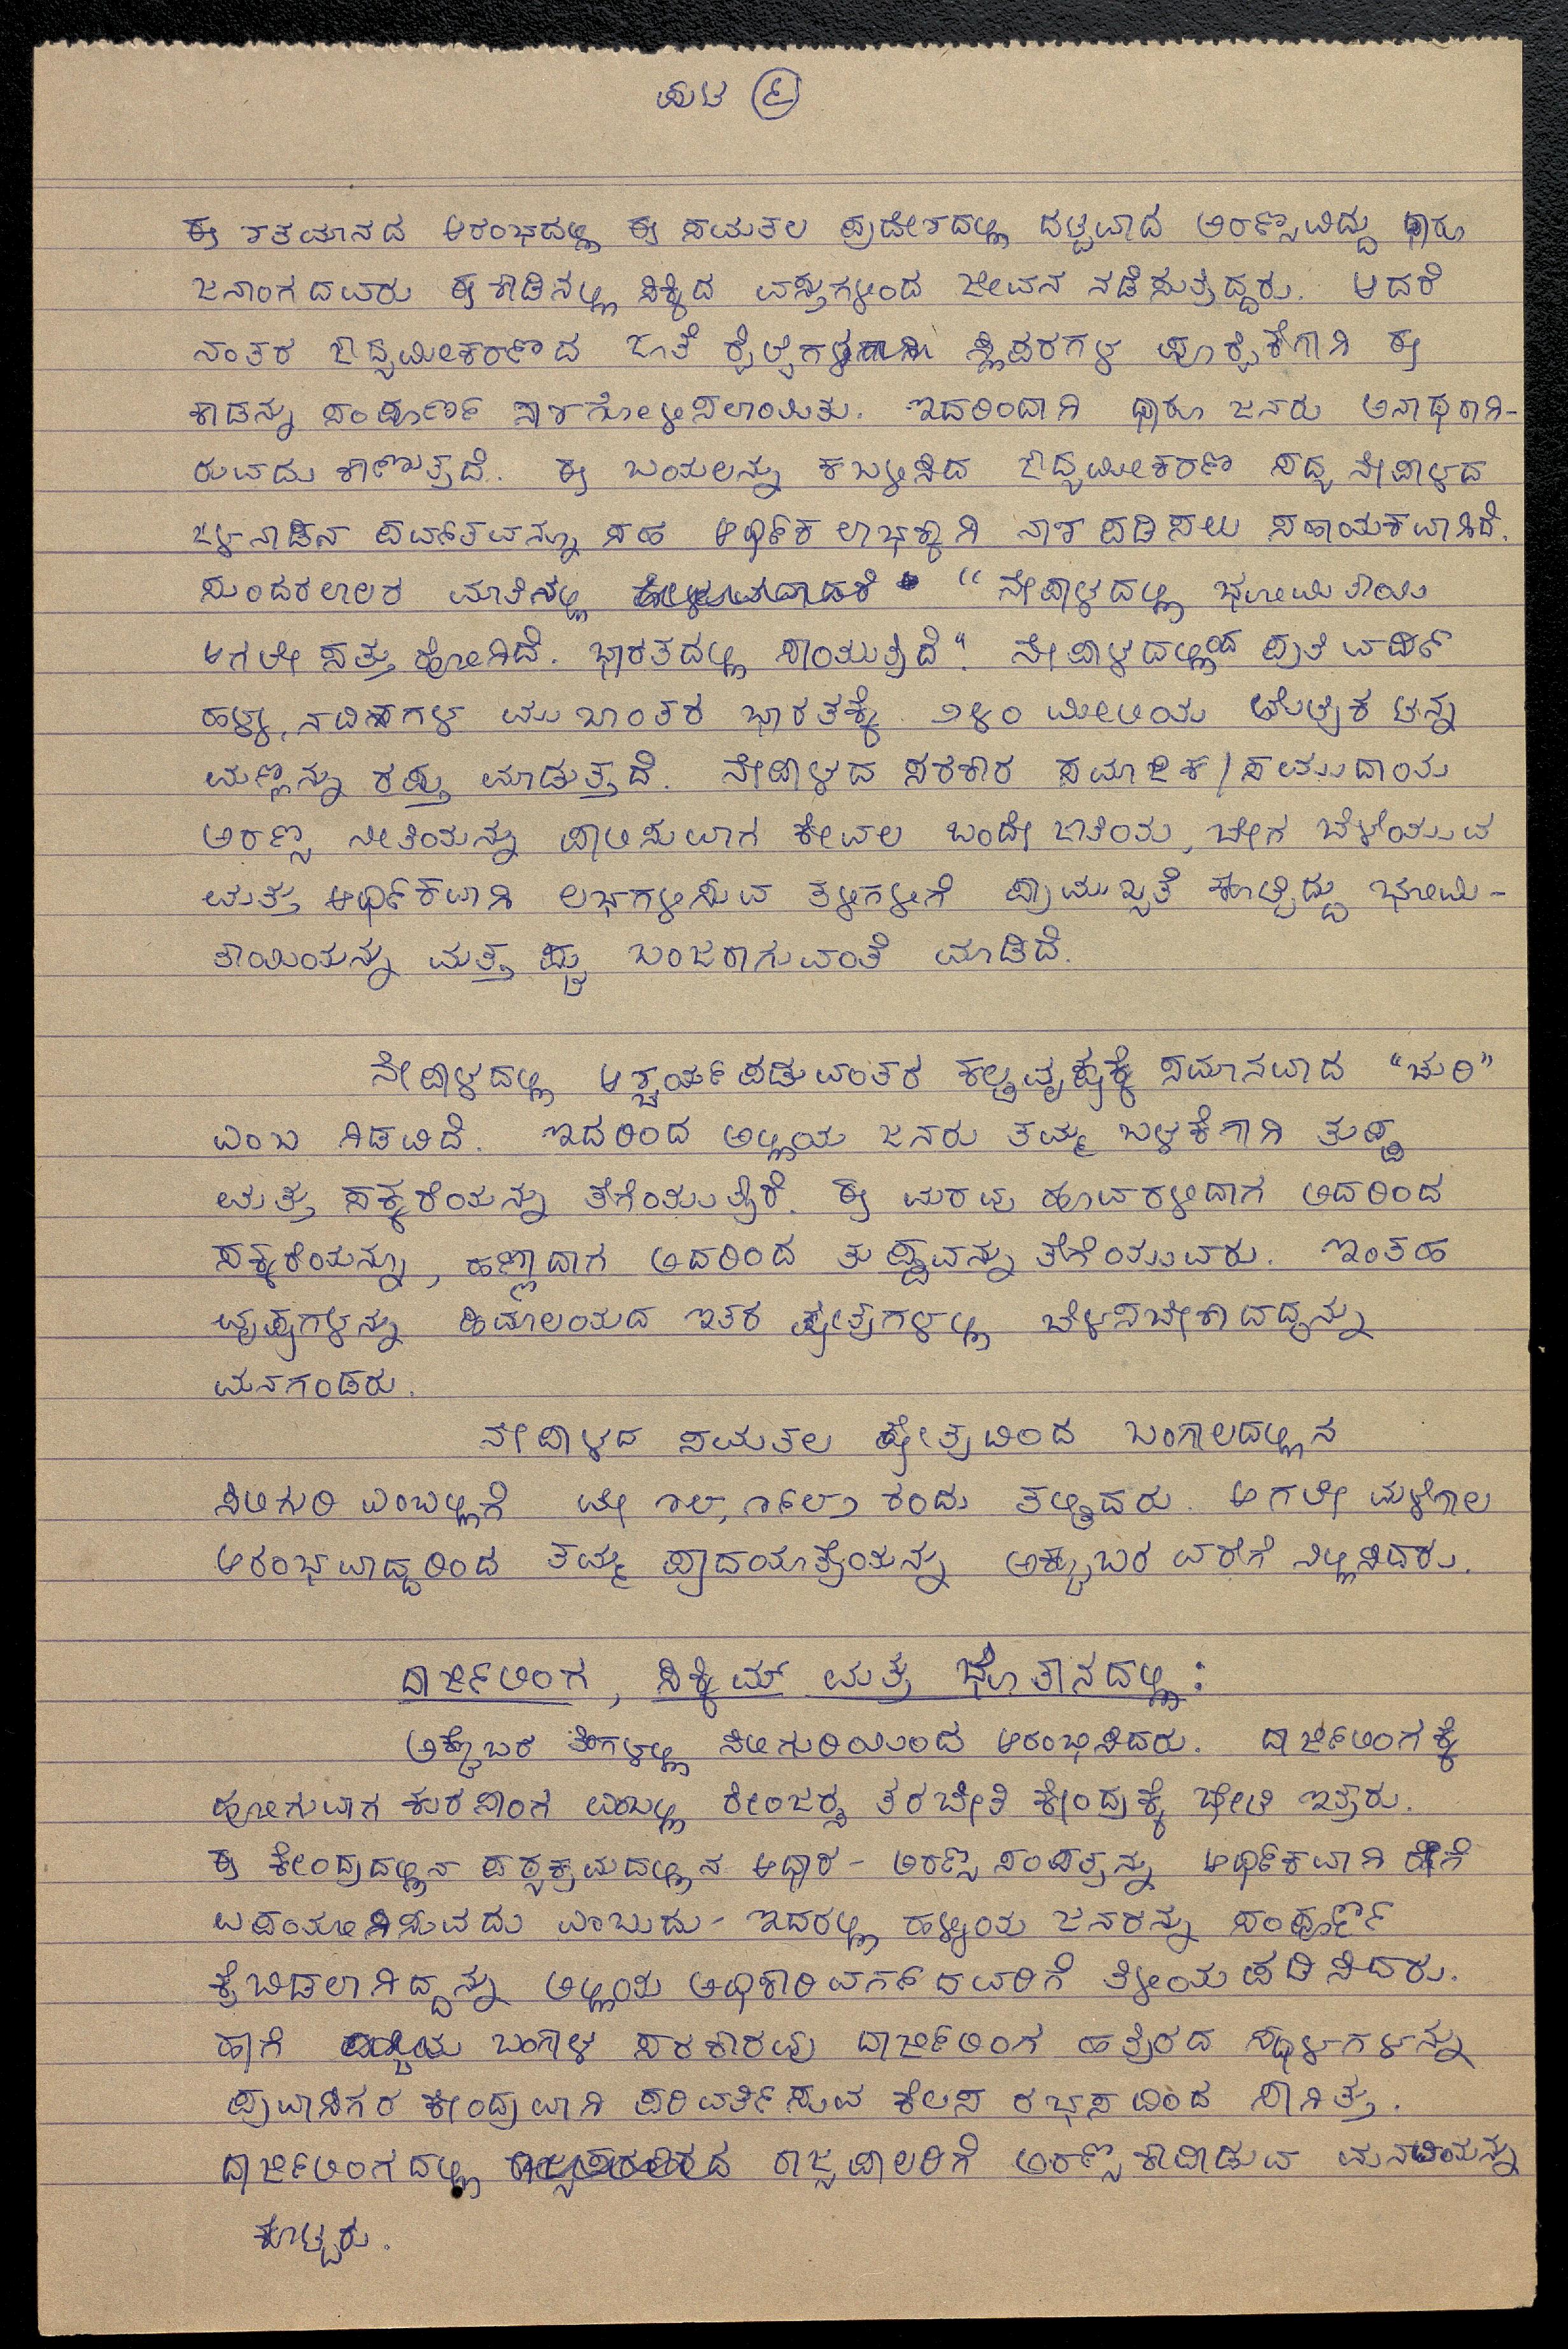 ಪುಟ ೬
ಈ ಶತಮಾನದ ಆರಂಭದಲ್ಲಿ ಈ ಸಮತಲ ಪ್ರದೇಶದಲ್ಲಿ ದಟ್ಟವಾದ ಅರಣ್ಯವಿದ್ದು ಥಾರು
ಜನಾಂಗದವರು ಈ ಕಾಡಿನಲ್ಲಿ ಸಿಕ್ಕಿದ ವಸ್ತುಗಳಿಂದ ಜೀವನ ನಡೆಸುತ್ತಿದ್ದರು. ಆದರೆ
ನಂತರ ಔದ್ಯಮೀಕರಣದ ಜತೆ ರೈಲ್ವೆಗಳ ಸ್ಲೀಪರಗಳ ಪೂರೈಕೆಗಾಗಿ ಈ
ಕಾಡನ್ನು ಸಂಪೂರ್ಣ ನಾಶಗೋಳಿಸಲಾಯಿತು. ಇದರಿಂದಾಗಿ ಥಾರೂ ಜನರು ಅನಾಥರಾಗಿ-
ರುವದು ಕಾಣುತ್ತದೆ. ಈ ಬಯಲನ್ನು ಕಬ್ಳಿಸಿದ ಔದ್ಯಮೀಕರಣ ಸದ್ಯ ನೇಪಾಳದ
ಒಳನಾಡಿನ ಪರ್ವತವನ್ನೂ ಸಹ ಆರ್ಥಿಕ ಲಾಭಕ್ಕಾಗಿ ನಾಶ ಪಡಿಸಲು ಸಹಾಯಕವಾಗಿದೆ.
ಸುಂದರಲಾಲರ ಮಾತಿನಲ್ಲಿ "ನೇಪಾಳದಲ್ಲಿ ಭೂಮಿತಾಯಿ
ಆಗಲೇ ಸತ್ತು ಹೋಗಿದೆ. ಭಾರತದಲ್ಲಿ ಸಾಯುತ್ತಿದೆ". ನೇಪಾಳದಲ್ಲಿಂದ ಪ್ರತಿ ವರ್ಷ
ಹಳ್ಳ, ನದಿಗಳ ಮುಖಾಂತರ ಭಾರತಕ್ಕೆ ೨೪೦ ಮೀಲಿಯ ಮೆಟ್ರಿಕ ಟನ್ನ
ಮಣ್ಣನ್ನು ರಫ್ತು ಮಾಡುತ್ತದೆ. ನೇಪಾಳದ ಸರಕಾರ ಸಮಾಜಿಕ/ಸಮುದಾಯ
ಅರಣ್ಯ ನೀತಿಯನ್ನು ಪಾಲಿಸುವಾಗ ಕೇವಲ ಒಂದೇ ಜಾತಿಯ, ಬೇಗ ಬೆಳೆಯುವ
ಮತ್ತು ಆರ್ಥಿಕವಾಗಿ ಲಭಗಳಿಸುವ ತಳಿಗಳಿಗೆ ಪ್ರಾಮುಖ್ಯತೆ ಕೊಟ್ಟಿದ್ದು ಭೂಮಿ-
ತಾಯಿಯನ್ನು ಮತ್ತಷ್ಟು ಬಂಜರಾಗುವಂತೆ ಮಾಡಿದೆ.
ನೇಪಾಳದಲ್ಲಿ ಆಶ್ಚರ್ಯಪಡುವಂತರ ಕಲ್ಪವೃಕ್ಷಕ್ಕೆ ಸಮಾನವಾದ "ಚುರಿ"
ಎಂಬ ಗಿಡವಿದೆ. ಇದರಿಂದ ಅಲ್ಲಿಯ ಜನರು ತಮ್ಮ ಬಳಕೆಗಾಗಿ ತುಪ್ಪ
ಮತ್ತು ಸಕ್ಕರೆಯನ್ನು ತೆಗೆಯುತ್ತಾರೆ. ಈ ಮರವು ಹೂವರಳಿದಾಗ ಅದರಿಂದ
ಸಕ್ಕರೆಯನ್ನೂ, ಹಣ್ಣಾದಾಗ ಅದರಿಂದ ತುಪ್ಪವನ್ನು ತೆಗೆಯುವರು. ಇಂತಹ
ವೃಕ್ಷಗಳನ್ನು ಹಿಮಾಲಯದ ಇತರ ಕ್ಷೇತ್ರಗಳಲ್ಲಿ ಬೆಳಸಬೇಕಾದದ್ದನ್ನು
ಮನಗಂಡರು.
ನೇಪಾಳದ ಸಮತಲ ಕ್ಷೇತ್ರದಿಂದ ಬಂಗಾಲದಲ್ಲಿನ
ಸಿಲಿಗುರಿ ಎಂಬಲ್ಲಿಗೆ ಮೇ ೧೮, ೧೯೮೨ ರಂದು ತಲ್ಪಿದರು. ಆಗಲೇ ಮಳೆಗಾಲ
ಆರಂಭವಾದ್ದರಿಂದ ತಮ್ಮ ಪಾದಯಾತ್ರೆಯನ್ನು ಅಕ್ಟೂಬರ ವರೆಗೆ ನಿಲ್ಲಿಸಿದರು.
ದಾರ್ಜಿಲಿಂಗ, ಸಿಕ್ಕಿಮ್ ಮತ್ತು ಭೂತಾನದಲ್ಲಿ:
ಅಕ್ಟೋಬರ ತಿಂಗಳಲ್ಲಿ ಸಿಲಿಗುರಿಯಿಂದ ಆರಂಭಿಸಿದರು. ದಾರ್ಜಿಲಿಂಗಕ್ಕೆ
ಹೋಗುವಾಗ ಕುರಸಾಂಗ ಎಂಬಲ್ಲಿ ರೇಂಜರ್ಸ ತರಬೇತಿ ಕೇಂದ್ರಕ್ಕೆ ಭೇಟಿ ಇತ್ತರು.
ಈ ಕೇಂದ್ರದಲ್ಲಿನ ಪಠ್ಯಕ್ರಮದಲ್ಲಿನ ಆಧಾರ - ಅರಣ್ಯ ಸಂಪತ್ತನ್ನು ಆರ್ಥಿಕವಾಗಿ ಹೇಗೆ
ಉಪಯೋಗಿಸುವದು ಎಂಬುದು - ಇದರಲ್ಲಿ ಹಳ್ಳಿಯ ಜನರನ್ನು ಸಂಪೂರ್ಣ
ಕೈಬಿಡಲಾಗಿದ್ದನ್ನು ಅಲ್ಲಿಯ ಅಧಿಕಾರಿ ವರ್ಗದವರಿಗೆ ತಿಳೀಯಪಡಿಸಿದರು.
ಹಾಗೆ ಬಂಗಾಳ ಸರಕಾರವು ದಾರ್ಜಿಲಿಂಗ ಹತ್ತಿರದ ಸ್ಥಾಳಗಳನ್ನು
ಪ್ರವಾಸಿಗರ ಕೇಂದ್ರವಾಗಿ ಪರಿವರ್ತಿಸುವ ಕೆಲಸ ರಭಸದಿಂದ ಸಾಗಿತ್ತು.
ದಾರ್ಜಿಲಿಂಗದಲ್ಲಿ ರಾಜ್ಯಪಾಲರಿಗೆ ಅರಣ್ಯ ಕಾಪಾಡುವ ಮನವಿಯನ್ನು
ಕೊಟ್ಟರು.